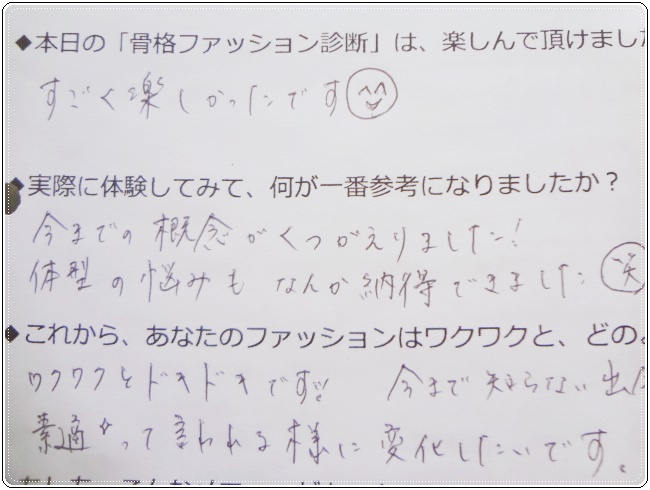 ◆本日の「骨格ファッション診断」は、楽しんで頂けました
すごく楽しかったです
◆実際に体験してみて、何が一番参考になりましたか？
今までの概念がくつがえりました!
体型の悩みもなんか納得できました 笑
◆これから、あなたのファッションはワクワクと、どの
ワクワクとドキドキです!! 今まで知らない出
素適☆って言われる様に変化したいです。